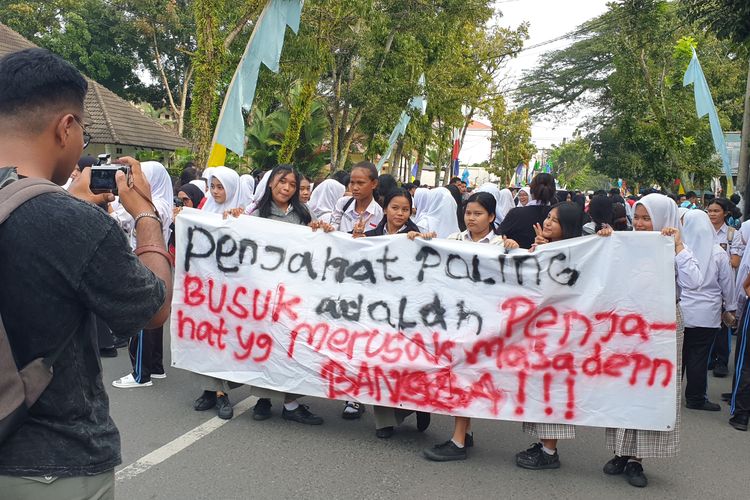 PenJahat PALING
BUSUK adalah PenJa-
hat yg merusak masa depn
BANGSA!!!